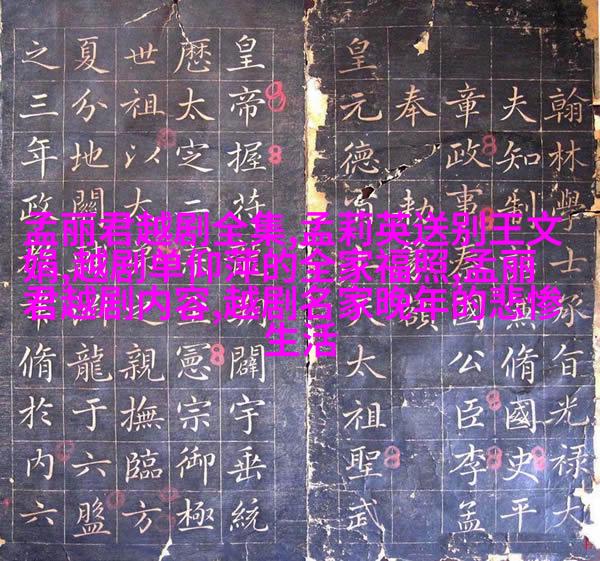 孟丽君越剧全集,孟莉英送别王文
娟,越剧单仰萍的全家福照,孟丽
君越剧内容,越剧名家晚年的悲惨
生活
翰林學士承旨光祿大
夫知制脩國史平
章政事國公臣李孟
奉
皇元德太祖聖武
皇帝握符闢宇垂統
歷太定二憲宗御極
世祖以大親撫臨方
夏分地龍于六盤
之三年政脩於内六